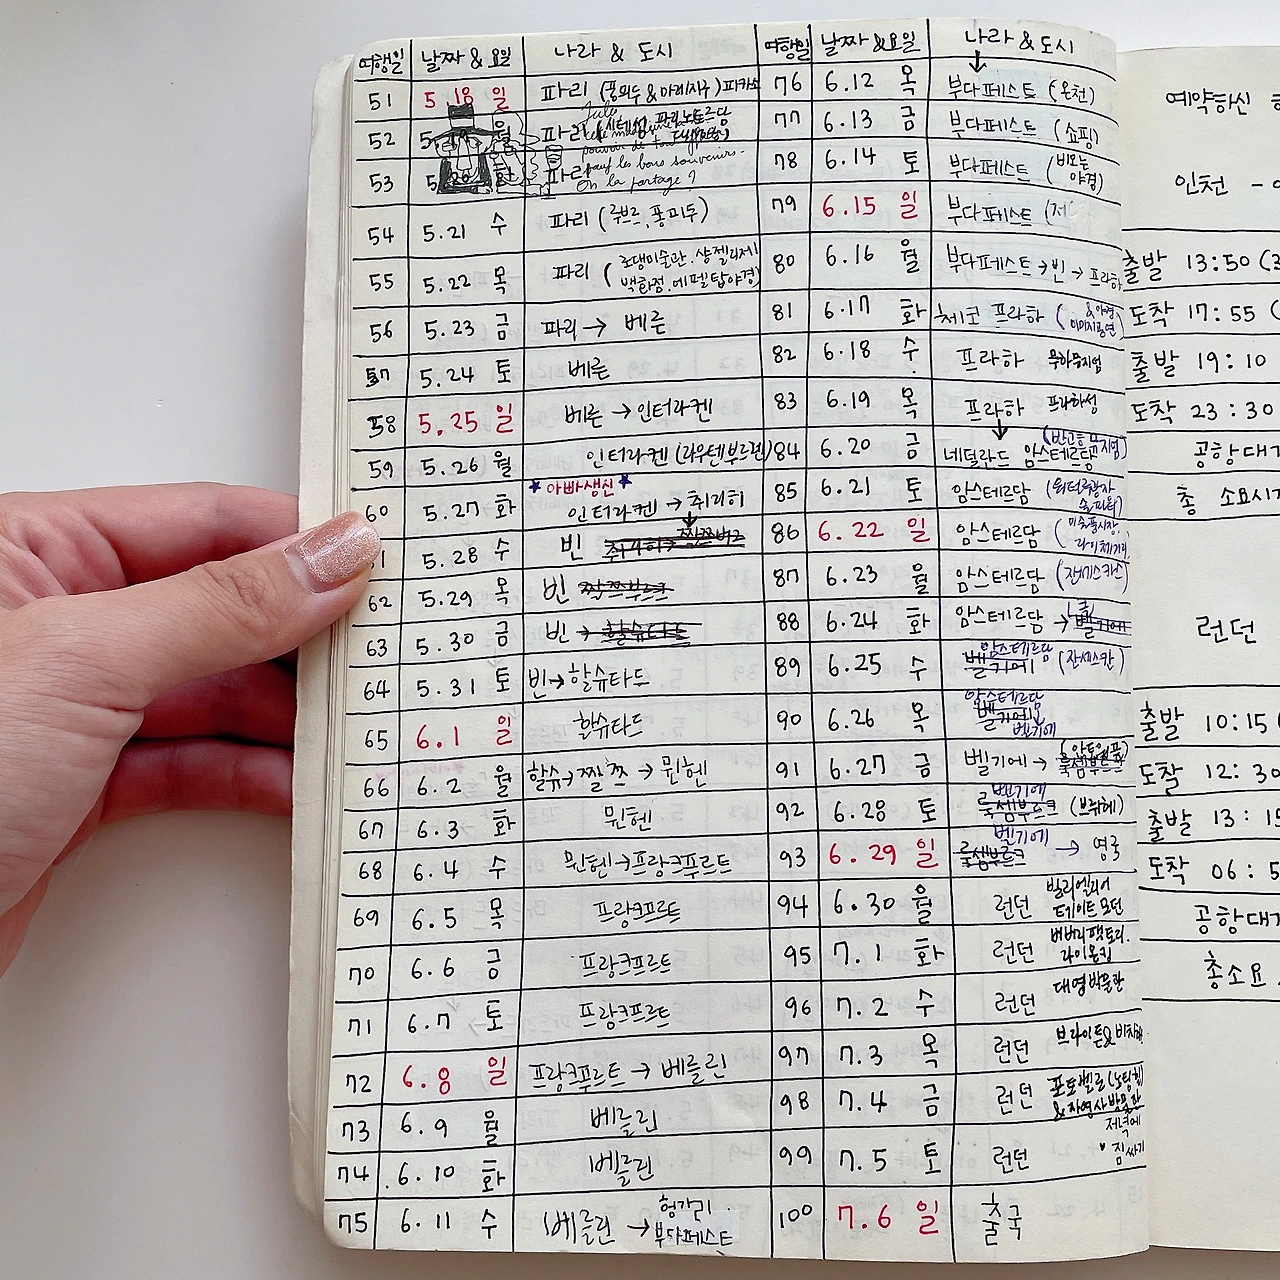 여행일 날짜 & 요일 나라 & 도시
51 5.18 일 파리 (퐁피두 & 마레지구) 피카소
52 월 파리 (시테섬, 파리노트르담
53 화 파리
Jule
pouvoir de
pour les bons souvenirs.
On la partage ?
54 5.21 수 파리 (루브르, 퐁피두)
55 5.22 목 파리 (로댕미술관. 샹젤리제
백화점. 에펠탑야경)
56 5.23 금 파리 → 베른
57 5.24 토 베른
58 5.25 일 베른 → 인터라켄
59 5.26 월 인터라켄 (라우텐부르넨)
★ 아빠생신 ★
60 5.27 화 인터라켄 → 취리히
61 5.28 수 빈 취리히 → 짤쯔부르크
62 5.29 목 빈 짤쯔부르크
63 5.30 금 빈 → 할슈타트
64 5.31 토 빈 → 할슈타드
65 6.1 일 할슈타드
66 6.2 월 할슈 → 짤쯔 → 뮌헨
67 6.3 화 뮌헨
68 6.4 수 뮌헨 → 프랑크푸르트
69 6.5 목 프랑크프르트
70 6.6 금 프랑크프르트
71 6.7 토 프랑크프르트
72 6.8 일 프랑크푸르트 → 베를린
73 6.9 월 베를린
74 6.10 화 베를린
75 6.11 수 베를린 → 헝가리
부다페스트
여행일 날짜 & 요일 나라 & 도시
76 6.12 목 부다페스트 (온천)
77 6.13 금 부다페스트 (쇼핑)
78 6.14 토 부다페스트 (비오는
야경)
79 6.15 일 부다페스트
80 6.16 월 부다페스트 → 빈 → 프라하
81 6.17 화 체코 프라하 (&야경
82 6.18 수 프라하 무하뮤지엄
83 6.19 목 프라하 프라하성
84 6.20 금 네덜란드 암스테르담 (반고흐뮤지엄)
85 6.21 토 암스테르담
86 6.22 일 암스테르담
87 6.23 월 암스테르담 (잔세스칸스)
88 6.24 화 암스테르담 → 벨기에
89 6.25 수 암스테르담 벨기에 (잔세스칸)
90 6.26 목 암스테르담
벨기에
벨기에
91 6.27 금 벨기에 → (안트베르펜)
룩셈부르크
92 6.28 토 벨기에
룩셈부르크 (브뤼헤)
93 6.29 일 벨기에
룩셈부르크 → 영국
94 6.30 월 런던 빌리엘리어
테이트모던
95 7.1 화 런던 버버리팩토리.
라이온킹
96 7.2 수 런던 대영박물관
97 7.3 목 런던 브라이튼&
98 7.4 금 런던 포토벨로 (노팅힐)
&자연사박물관
99 7.5 토 런던 저녁에
짐싸기
100 7.6 일 출국
예약하신
인천 -
출발 13:50
도착 17:55
출발 19:10
도착 23:30
공항대기
총 소요시간
런던
출발 10:15
도착 12:30
출발 13:15
도착 06:5
공항대기
총소요